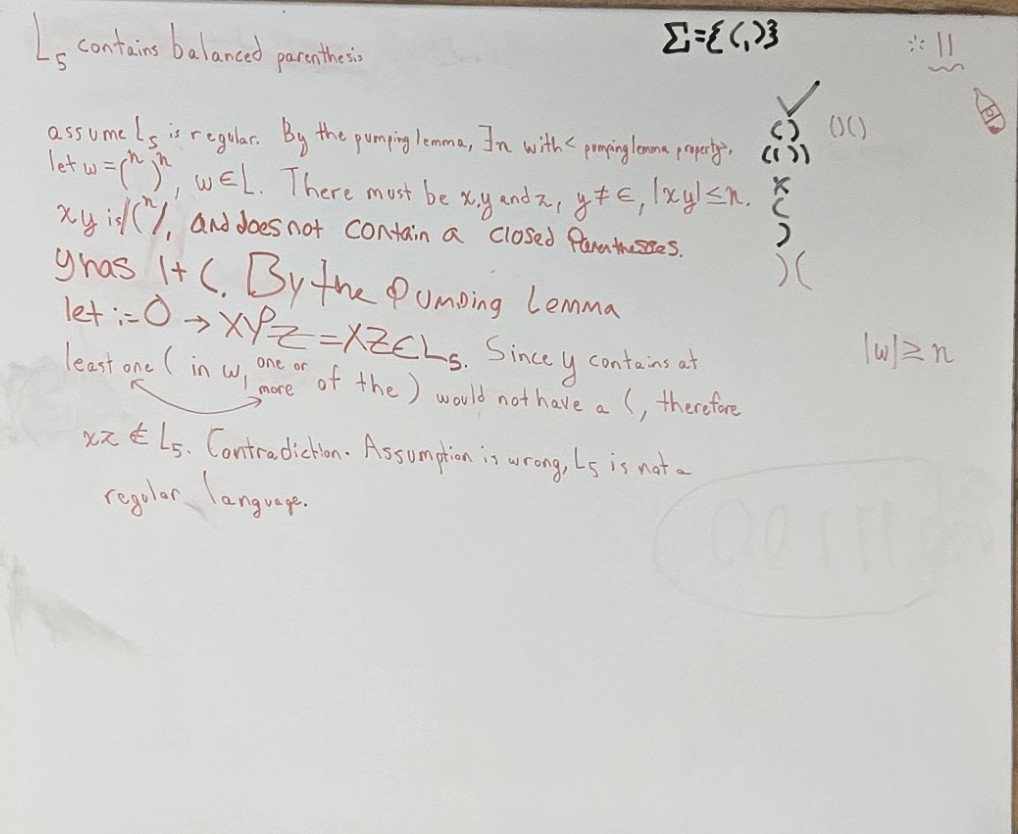 L₅ contains balanced parenthesis
Σ={(,)}
11
assume L₅ is regular. By the pumping lemma, ∃n with < pumping lemma property>.
let w = (ⁿ )ⁿ, w∈L. There must be x,y and z, y ≠ ϵ, |xy| ≤ n.
xy is (ⁿ, and does not contain a closed Parenthesses.
y has 1+ (. By the Pumping Lemma
let i=0 → xy⁰z = xz∈L₅. Since y contains at
least one ( in w, one or more of the ) would not have a (, therefore
xz ∉ L₅. Contradiction. Assumption is wrong, L₅ is not a
regular language.
✓
() ()()
(())
x
(
)
)(
|w| ≥ n